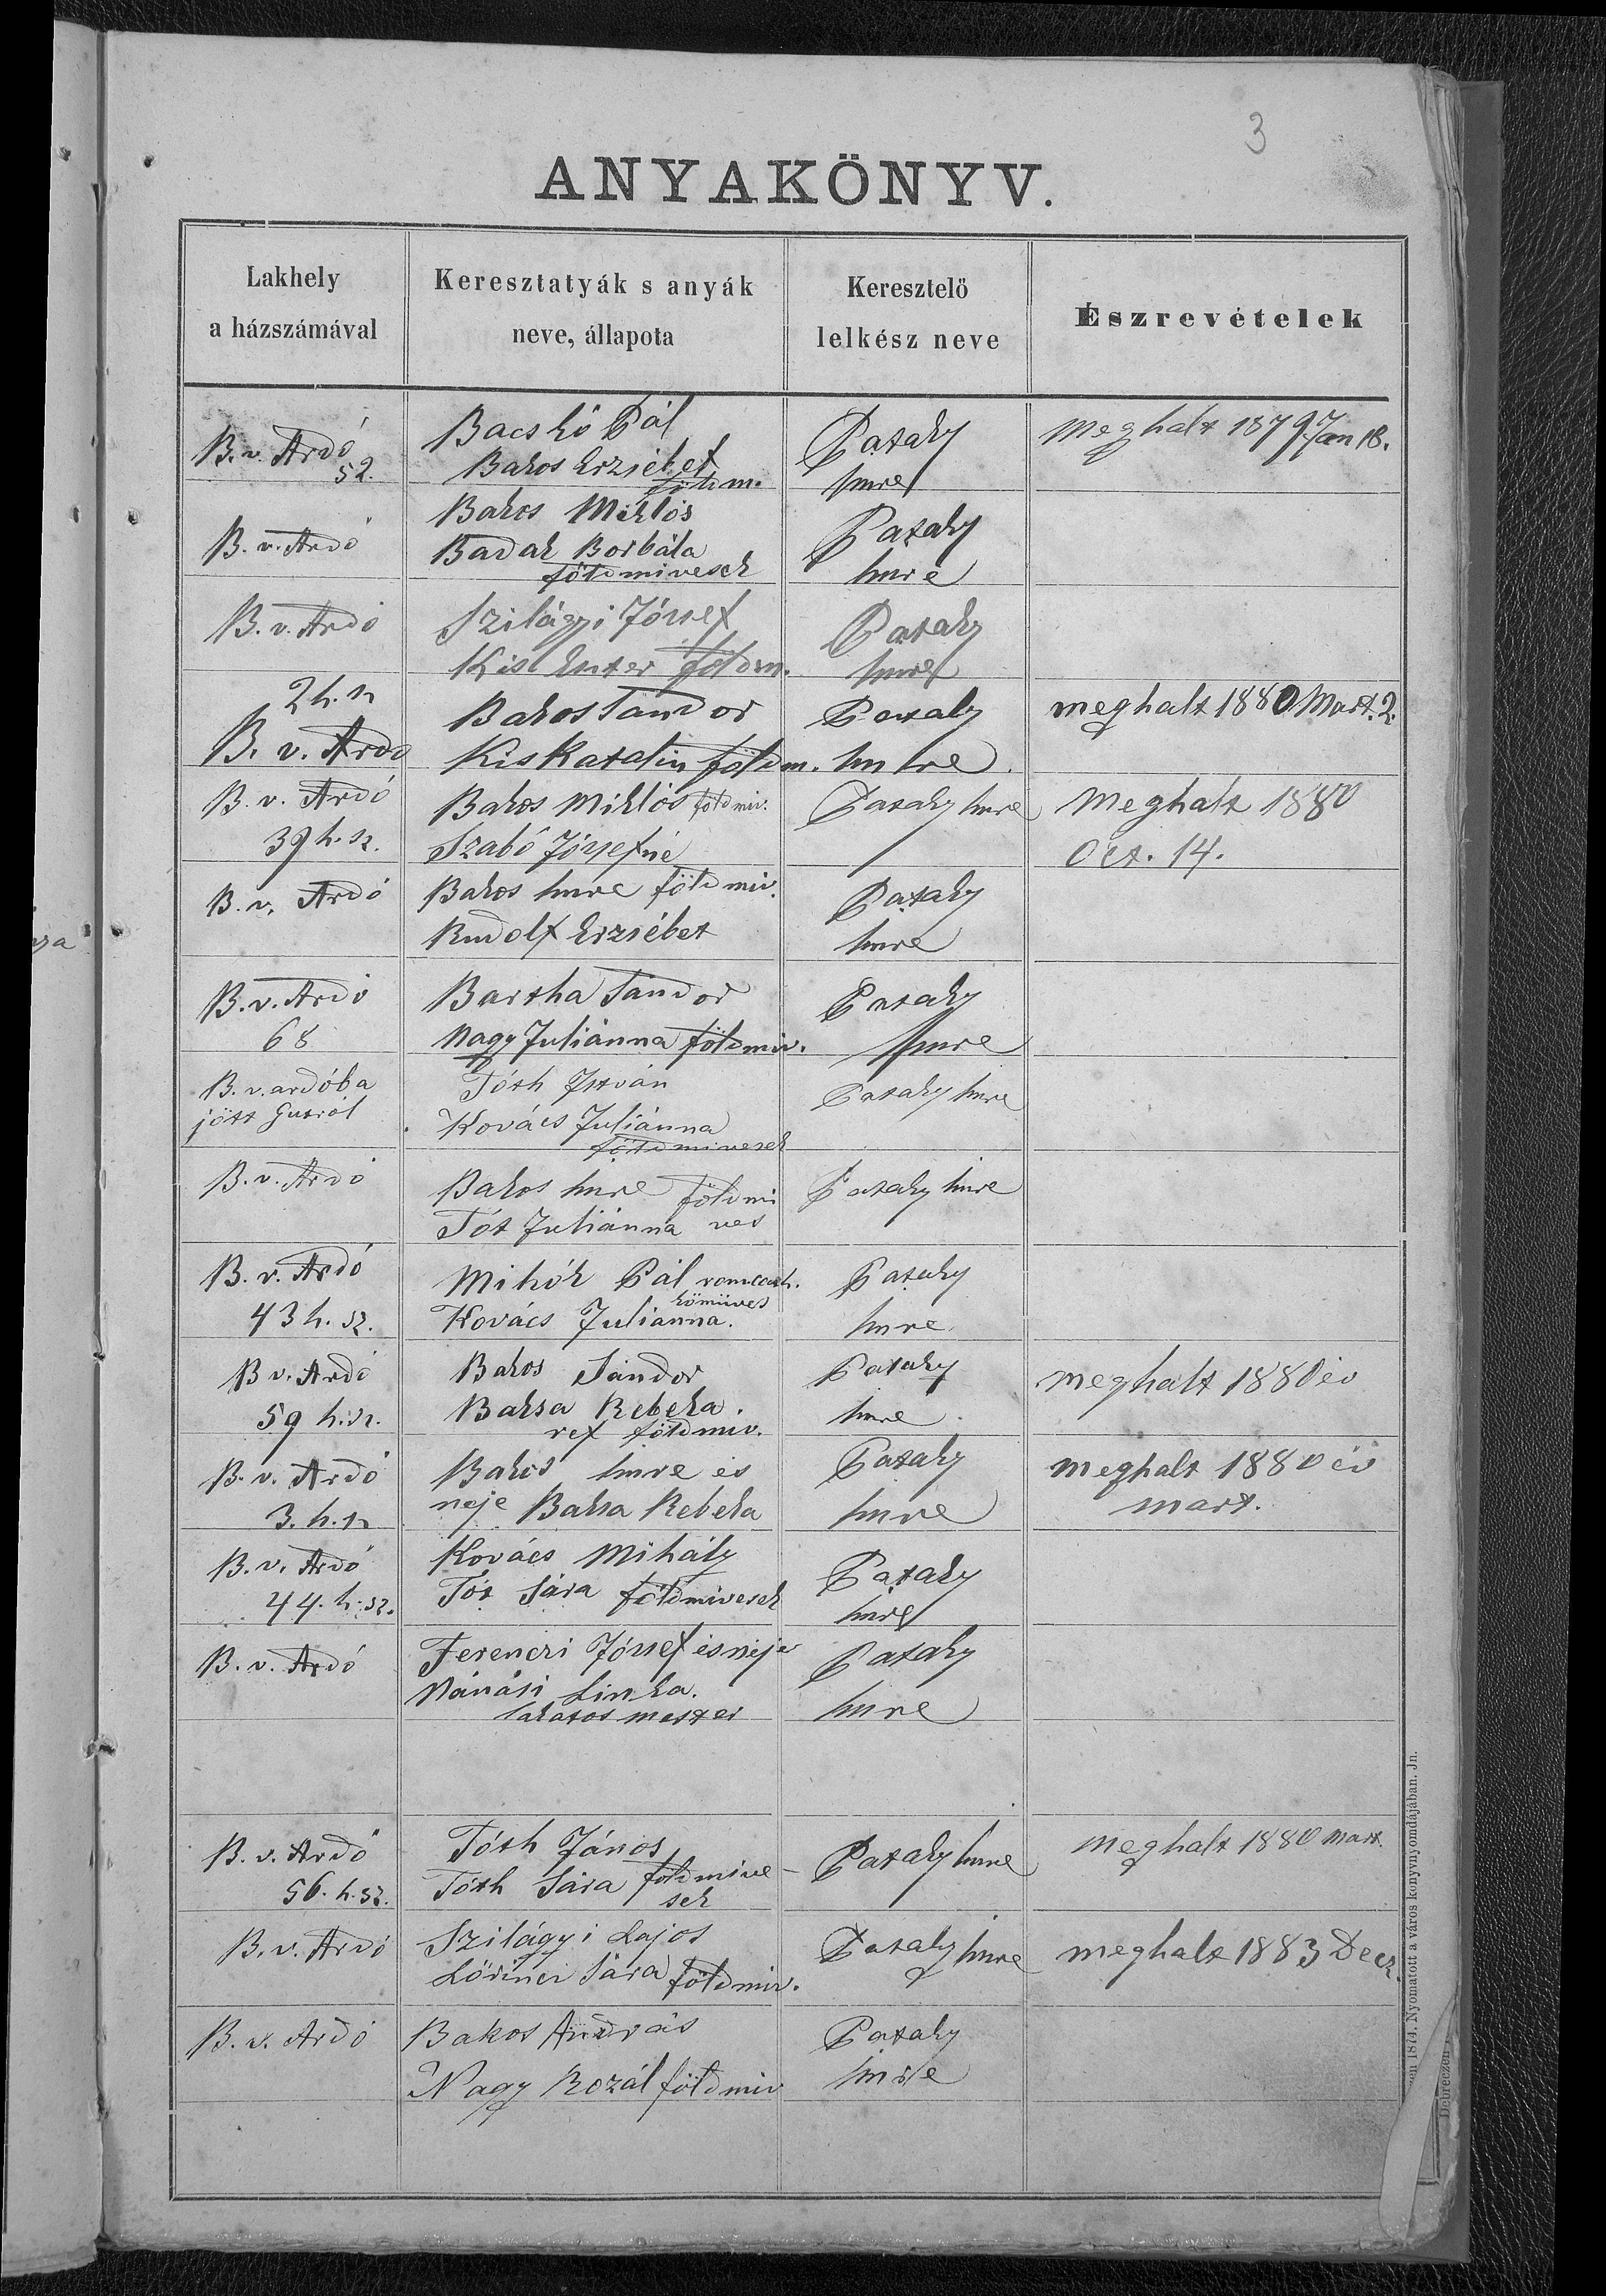 3
ANYAKÖNYV.
Lakhely
a házszámával
Keresztatyák s anyák
neve, állapota
Keresztelő
lelkész neve
Észrevételek
B. v. Ardó
52.
Bacskó Pál
Bakos Erzsébet
földm.
Pataky
Imre
Meghalt 1879 Jan 18.
B. v. Ardó
Bakos Miklós
Badak Borbála
földmivesek
Pataky
Imre
B. v. Ardó
Szilágyi József
Kis Eszter földm.
Pataky
Imre
2 h. sz
B. v. Ardó
Bakos Sándor
Kis Katalin földm.
Pataky
Imre
meghalt 1880 Mart. 2.
B. v. Ardó
39 h. sz.
Bakos Miklós földmiv.
Szabó Józsefné
Pataky Imre
Meghalt 1880
Oct. 14.
B. v. Ardó
Bakos Imre földmiv.
Rudolf Erzsébet
Pataky
Imre
B. v. Ardó
68
Bartha Sándor
Nagy Juliánna földmiv.
Pataky
Imre
B. v. ardóba
jött Gutról
Tóth István
Kovács Juliánna
földmivesek
Pataky Imre
B. v. Ardó
Bakos Imre földmi
Tót Juliánna ves
Pataky Imre
B. v. Ardó
43 h. sz.
Mihók Pál rom cath.
kömüves
Kovács Julianna.
Pataky
Imre
B v. Ardó
59 h. sz.
Bakos Sándor
Baksa Rebeka.
ref földmiv.
Pataky
Imre
meghalt 1880 év
B. v. Ardó
3. h. sz
Bakos Imre és
neje Baksa Rebeka
Pataky
Imre
meghalt 1880 év
mart.
B. v. Ardó
44. h. sz.
Kovács Mihály
Tót Sára földmivesek
Pataky
Imre
B. v. Ardó
Ferenczi József és neje
Nánási Linka.
lakatos mester
Pataky
Imre
B. v. Ardó
56. h. sz.
Tóth János
Tóth Sára földmive-
sek
Pataky Imre
meghalt 1880 mart.
B. v. Ardó
Szilágyi Lajos
Lőrincz Sára földmiv.
Pataky Imre
meghalt 1883 Decz.
B. v. Ardó
Bakos András
Nagy Rozál földmiv
Pataky
Imre
1874. Nyomatott a város könyvnyomdájában. Jn.
Debreczen